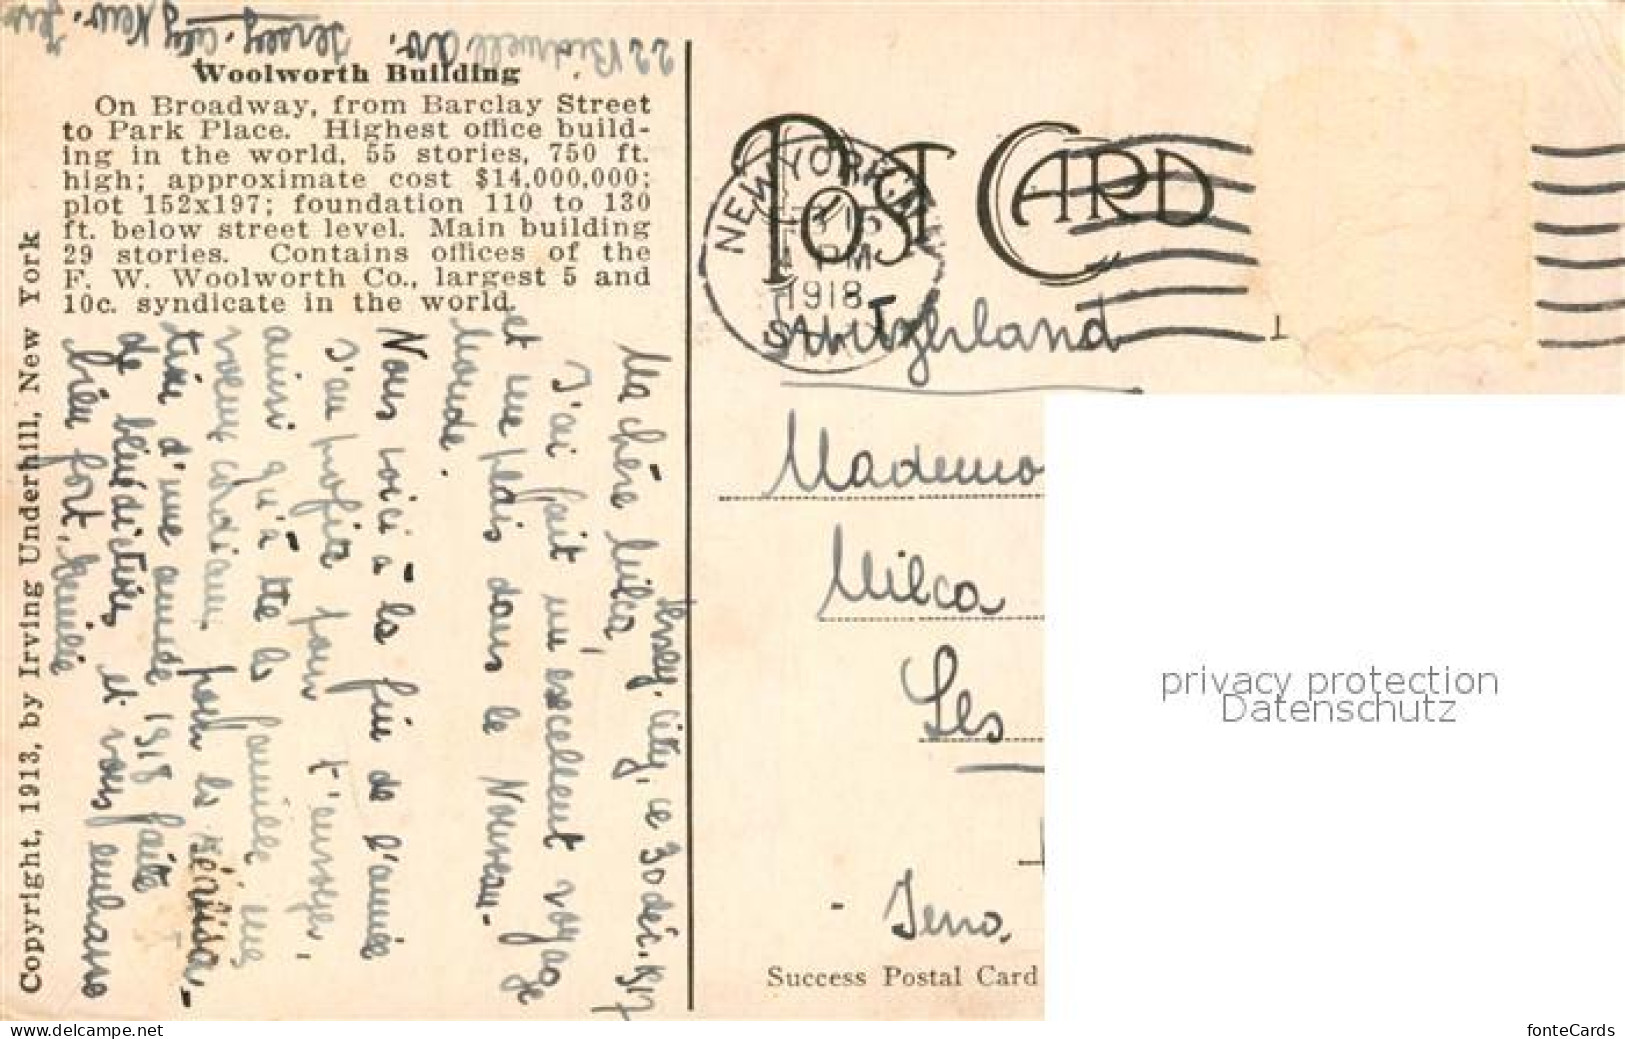 22 Bidwell Av. Jersey-City New-Jers
Woolworth Building
On Broadway, from Barclay Street
to Park Place. Highest office build-
ing in the world, 55 stories, 750 ft.
high; approximate cost $14,000,000;
plot 152x197; foundation 110 to 130
ft. below street level. Main building
29 stories. Contains offices of the
F. W. Woolworth Co., largest 5 and
10c. syndicate in the world.
Copyright, 1913, by Irving Underhill, New York
Jersey-City, ce 30 déc. 1917
Ma chère Milca,
J'ai fait un excellent voyage
et me plais dans le Nouveau-
Monde.
Nous voici à la fin de l'année
J'en profite pour t'envoyer,
ainsi qu'à tte la famille mes
voeux cordiaux pour la
tion d'une année 1918 faite
de bénédictions et vous embrasse
bien fort.
POST CARD
NEW YORK, N.Y.
PM
1918
Switzerland
1
Mademo
Milca
Les
Success Postal Card
privacy protection
Datenschutz
www.delcampe.net
fonteCards